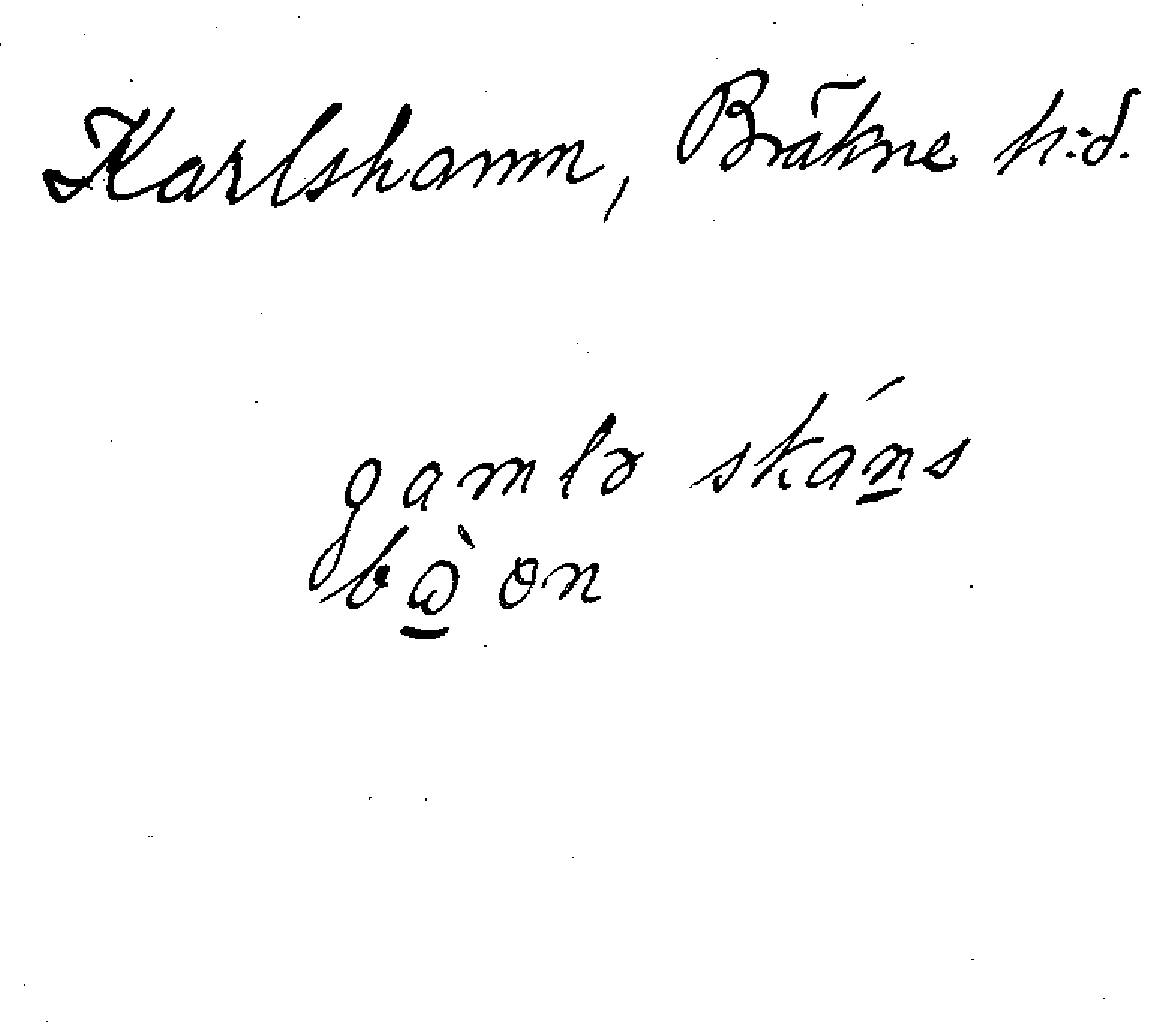 Karlshamn, Bräkne h:d.
gamlɜ ská̱ns
bɷ̠̀ ɵn